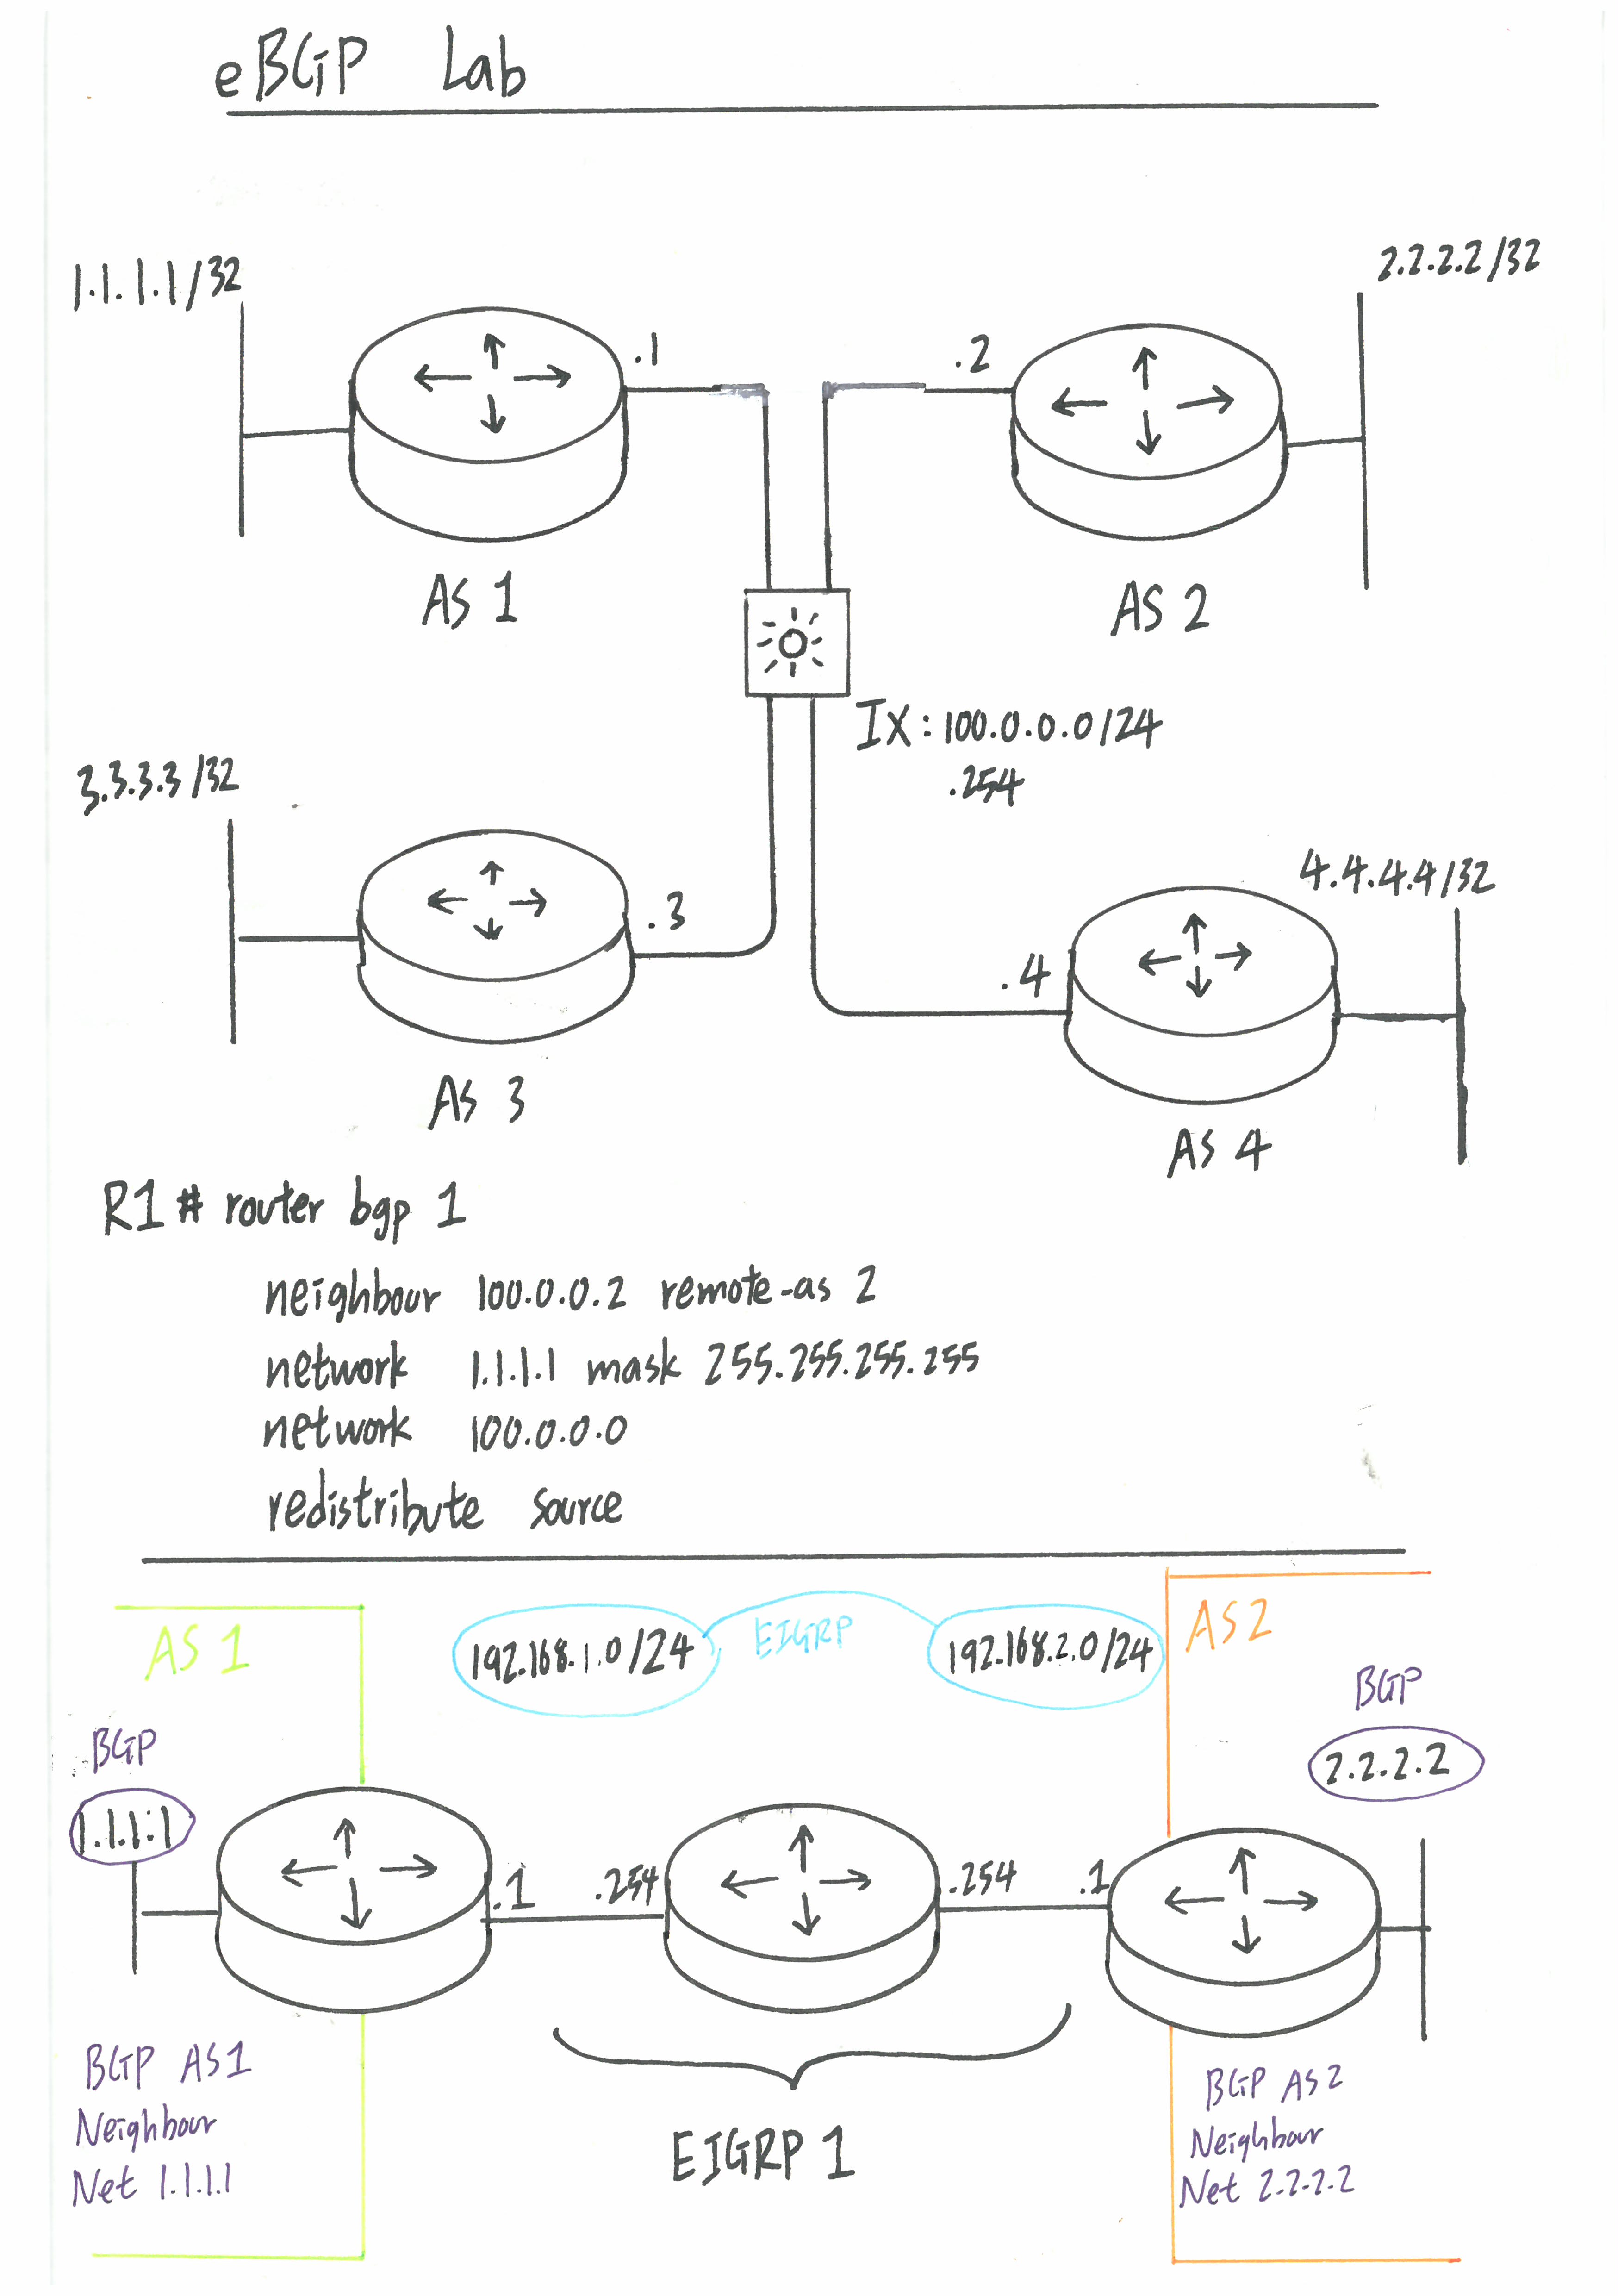 eBGP Lab
1.1.1.1/32
2.2.2.2/32
.1
.2
AS 1
AS 2
IX: 100.0.0.0/24
.254
3.3.3.3/32
4.4.4.4/32
.3
.4
AS 3
AS 4
R1# router bgp 1
neighbour 100.0.0.2 remote-as 2
network 1.1.1.1 mask 255.255.255.255
network 100.0.0.0
redistribute source
AS 1
192.168.1.0/24
EIGRP
192.168.2.0/24
AS2
BGP
1.1.1.1
BGP
2.2.2.2
.1
.254
.254
.1
BGP AS1
Neighbour
Net 1.1.1.1
EIGRP 1
BGP AS2
Neighbour
Net 2.2.2.2